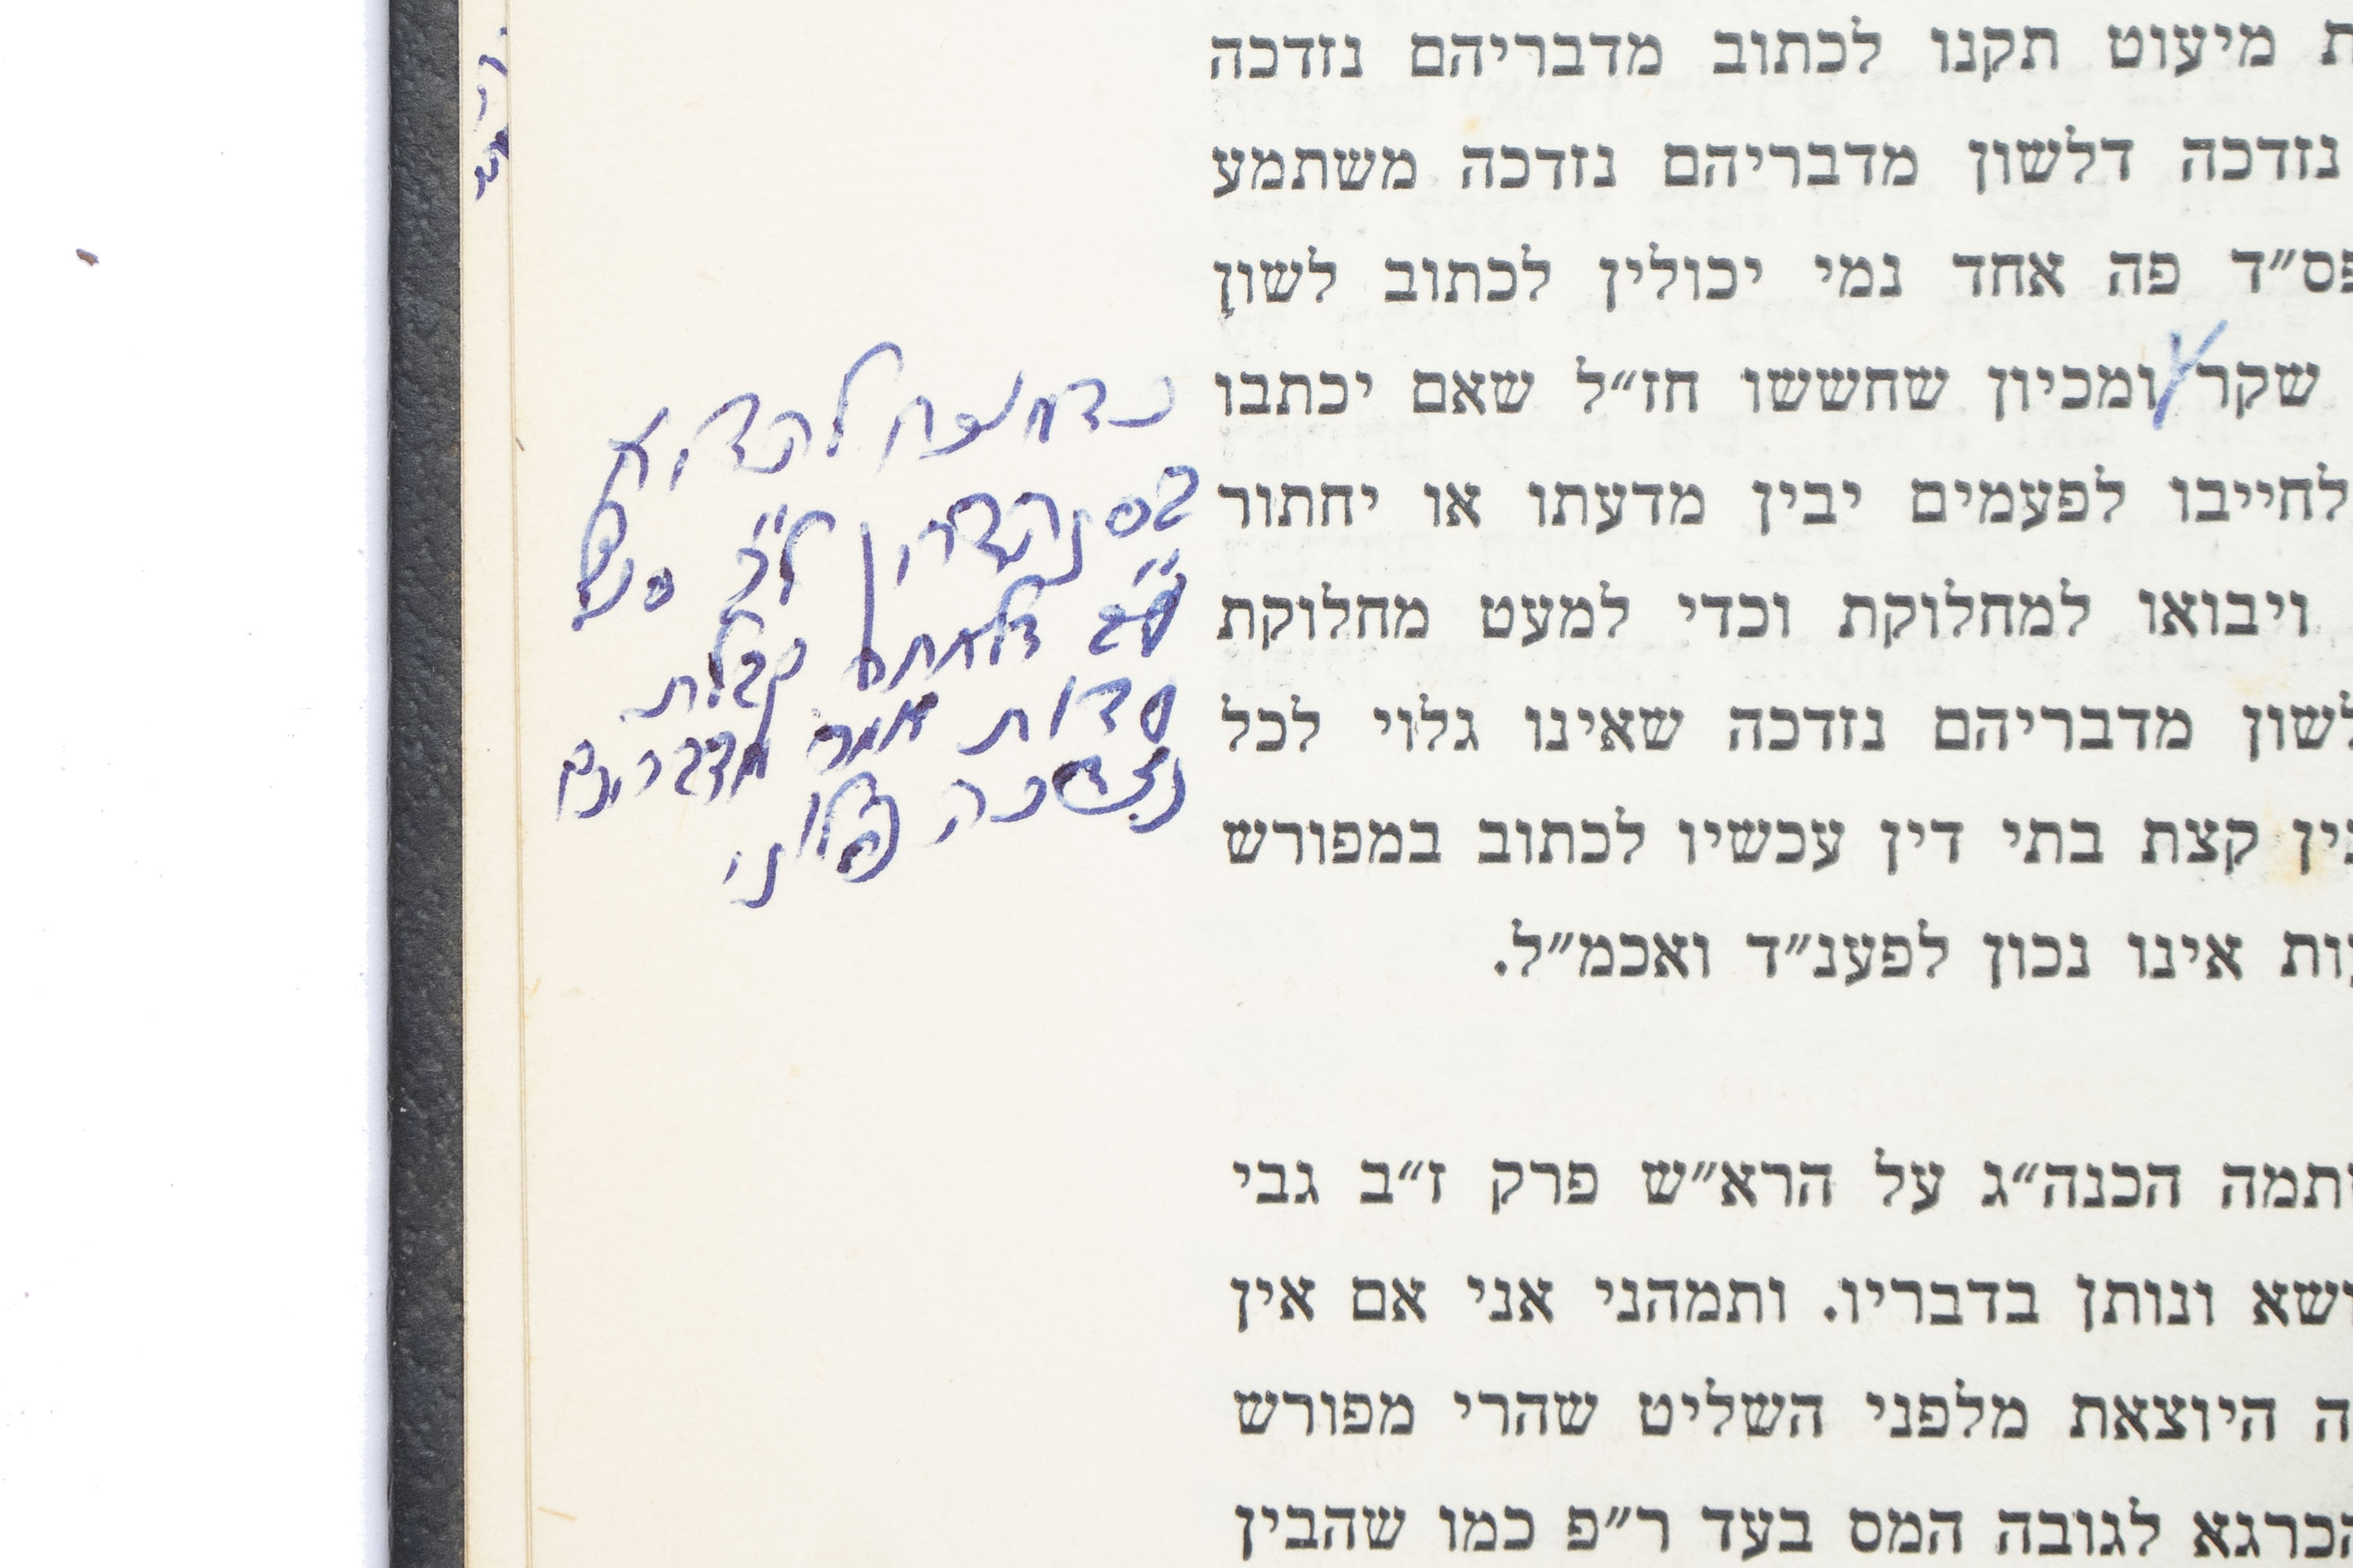 ת מיעוט תקנו לכתוב מדבריהם נזדכה
נזדכה דלשון מדבריהם נזדכה משתמע
פס״ד פה אחד נמי יכולין לכתוב לשון
שקר ומכיון שחששו חז״ל שאם יכתבו
לחייבו לפעמים יבין מדעתו או יחתור
ויבואו למחלוקת וכדי למעט מחלוקת
לשון מדבריהם נזדכה שאינו גלוי לכל
בין קצת בתי דין עכשיו לכתוב במפורש
ות אינו נכון לפענ״ד ואכמ״ל.
תמה הכנה״ג על הרא״ש פרק ז״ב גבי
ושא ונותן בדבריו. ותמהני אני אם אין
ה היוצאת מלפני השליט שהרי מפורש
הכרגא לגובה המס בעד ר״פ כמו שהבין
להדיא
בסנהדרין ל״
קבלת
עדות אמר מדבריהם
נזדכה פלוני